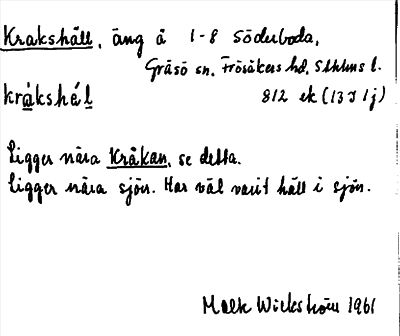 Krakshäll, äng å 1-8 Söderboda,
Gräsö sn, Frösåkers hd, Sthlms l.
kråkshé̜l 812 ek (13 I 1j)
Ligger nära Kråkan, se detta.
Ligger nära sjön. Har väl varit häll i sjön.
Wickström 1961